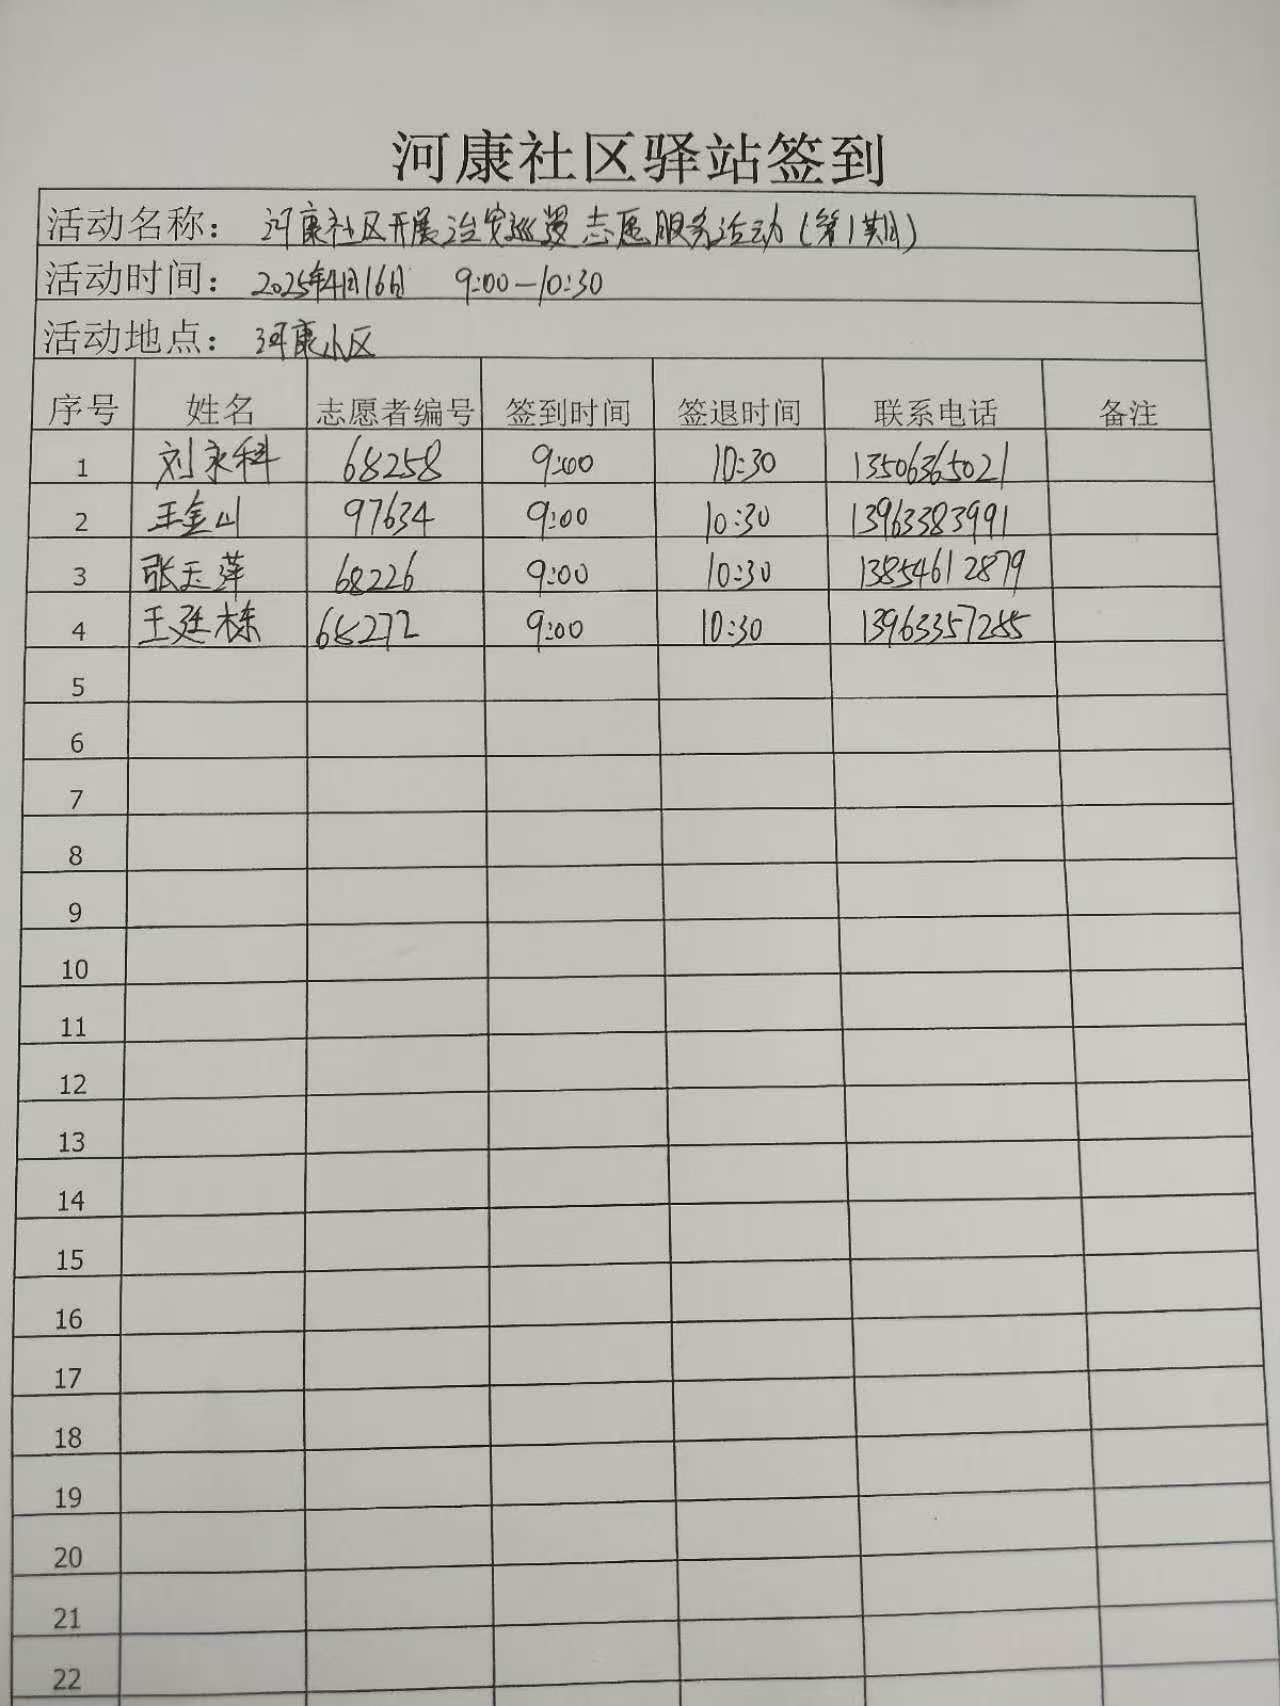 河康社区驿站签到
活动名称： 河康社区开展治安巡逻志愿服务活动（第1期）
活动时间： 2025年4月16日 9:00—10:30
活动地点： 河康小区
序号 姓名 志愿者编号 签到时间 签退时间 联系电话 备注
1 刘永科 68258 9:00 10:30 13506365021
2 王金山 97634 9:00 10:30 13963383991
3 张玉萍 68226 9:00 10:30 13854612879
4 王廷栋 68272 9:00 10:30 13963357255
5
6
7
8
9
10
11
12
13
14
15
16
17
18
19
20
21
22